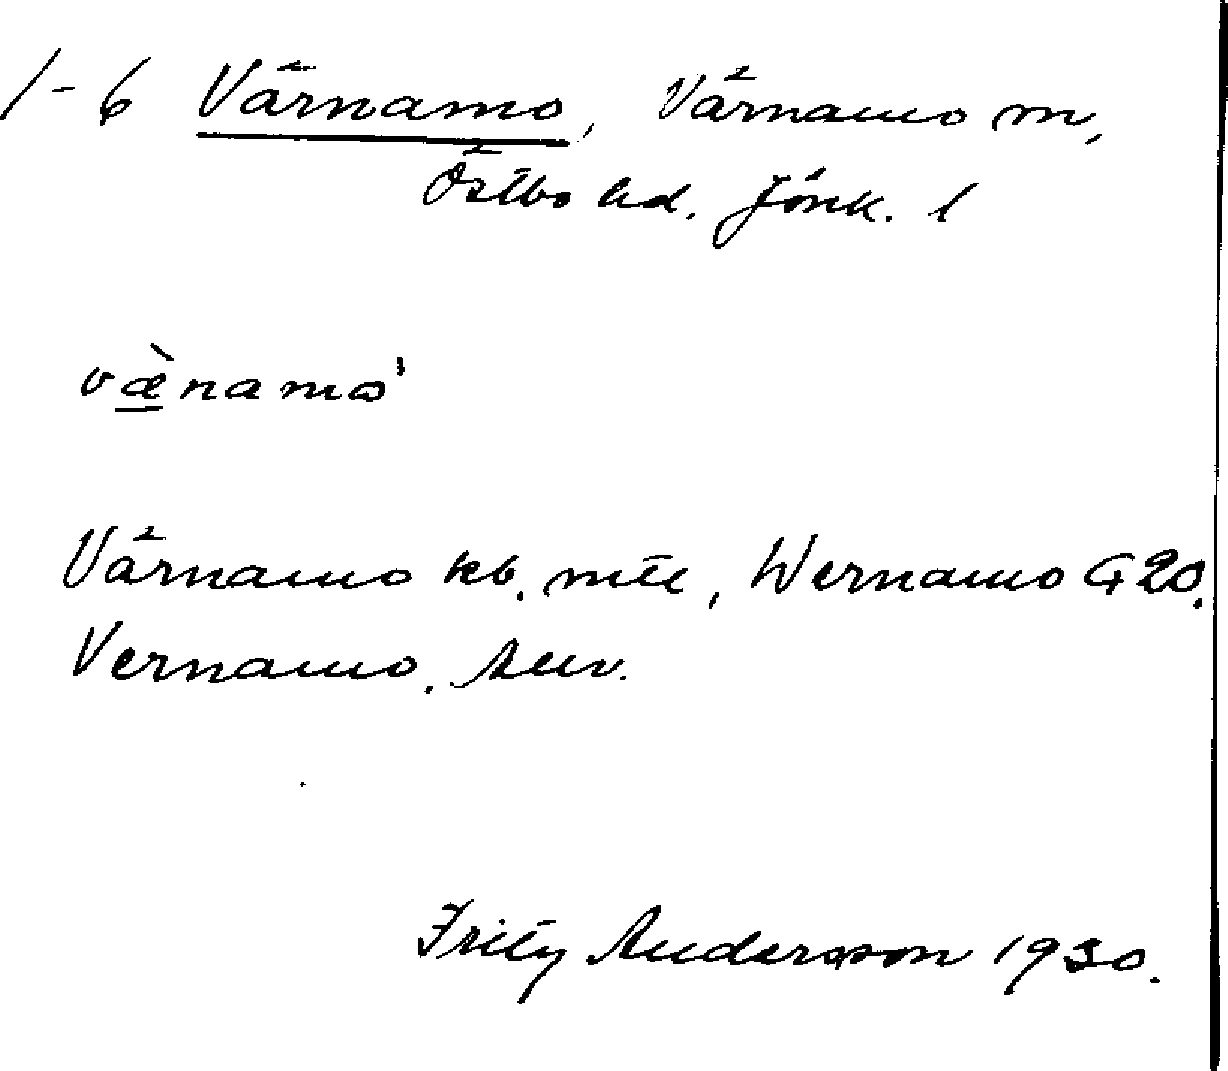 1-6 Värnamo, Värnamo m,
Östbo hd. Jönk. l
væ̀namo'
Värnamo kb. mtl, Wernamo G 20.
Vernamo.
Fritz Andersson 1930.